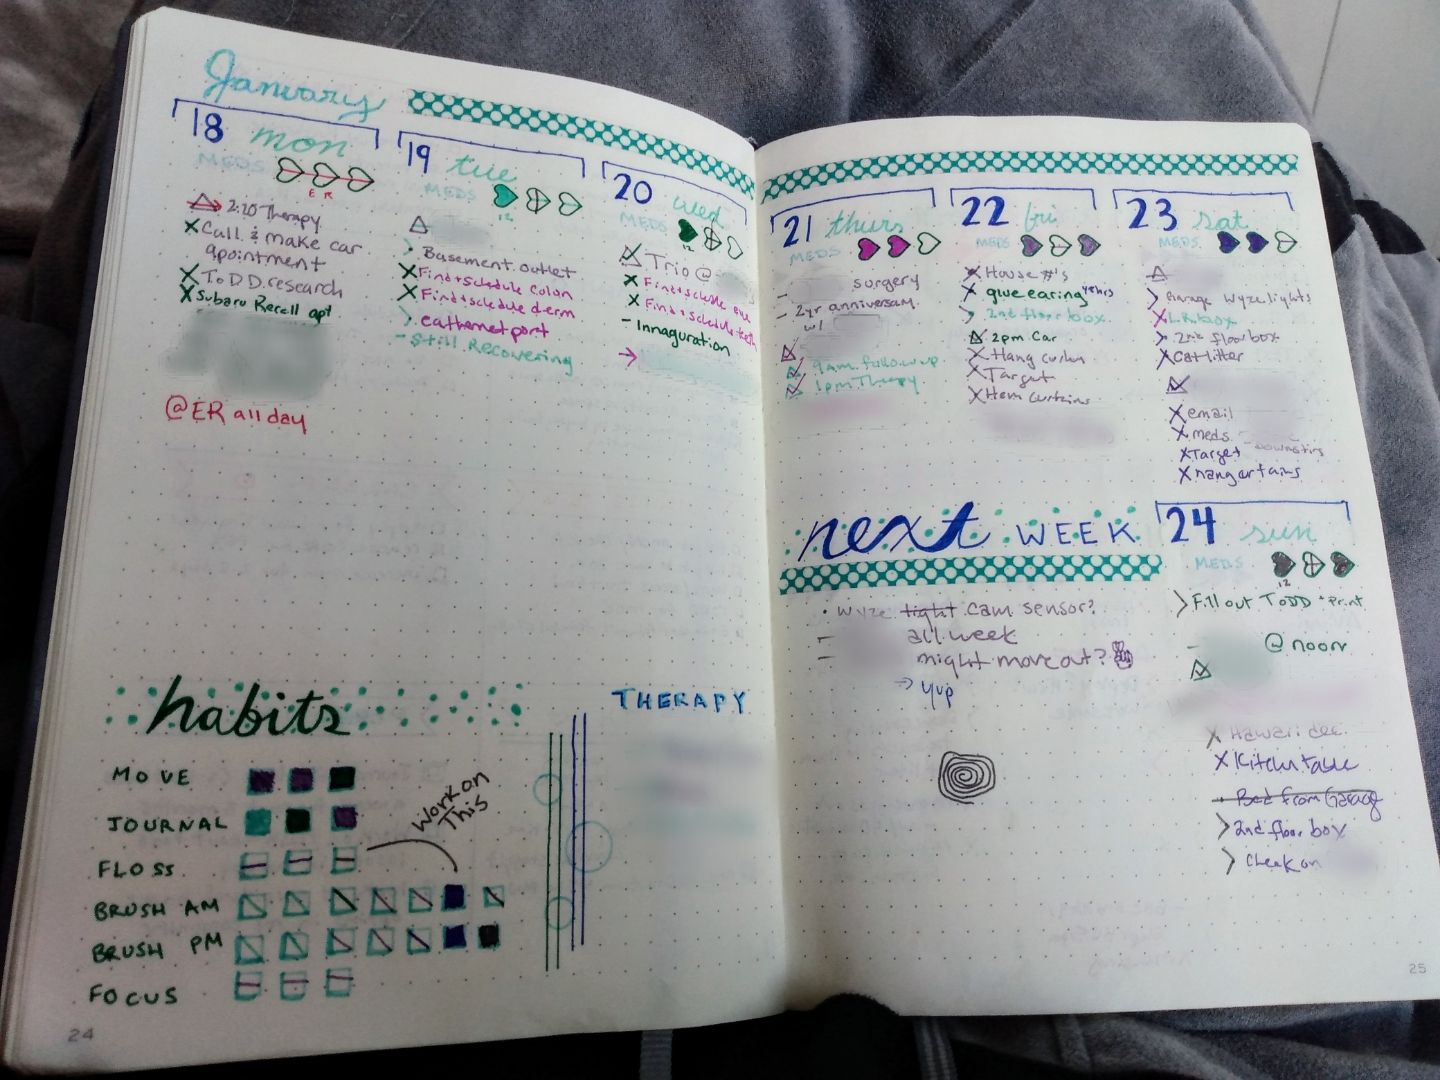 January
18 mon
MEDS
E R
2:20 Therapy
Call & make car
apointment
ToDD research
Subaru Recall apt
@ER all day
19 tue
MEDS
12
Basement outlet
Find + schedule colon
Find + schedule derm
eathernet port
- Still Recovering
20 wed
MEDS
12
Trio @
Find + schedule eye
Find + schedule teeth
- Innaguration
habits
MOVE
JOURNAL
FLOSS
BRUSH AM
BRUSH PM
FOCUS
Work on
This
THERAPY
24
21 thurs
MEDS
- surgery
- 2yr anniversary
w/
9am follow up
1pm Therapy
22 fri
MEDS
House #'s
glue earing
2nd floor box
2pm Car
Hang curtn
Target
Hem curtains
23 sat
MEDS
Garage wyze lights
L.R. box
2nd floor box
Cat litter
email
meds
Target
hang curtains
next WEEK
• Wyze light cam sensor?
- all week
- might move out?
→ Yup
24 sun
MEDS
12
Fill out ToDD + print
- @ noon
Hawaii dec.
Kitchen table
Bed from Garage
2nd floor box
Check on
25